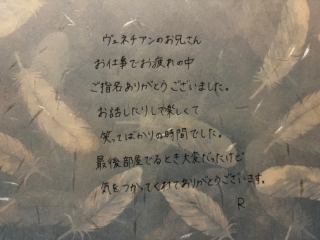 ヴェネチアンのお兄さん
お仕事でお疲れの中
ご指名ありがとうございました。
お話したりして楽しくて
笑ってばかりの時間でした。
最後部屋でるとき大変だったけど
気をつかってくれてありがとうございます。
R